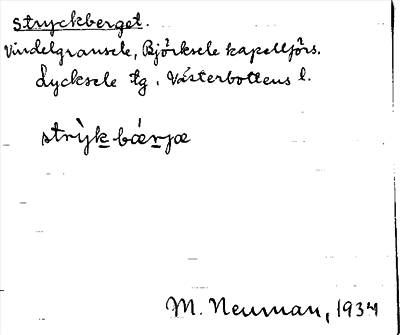 Stryckberget.
Vindelgransele, Björksele kapellförs.
Lycksele tg, Västerbottens l.
strỳk bǽrjæ
M. Neuman, 1934